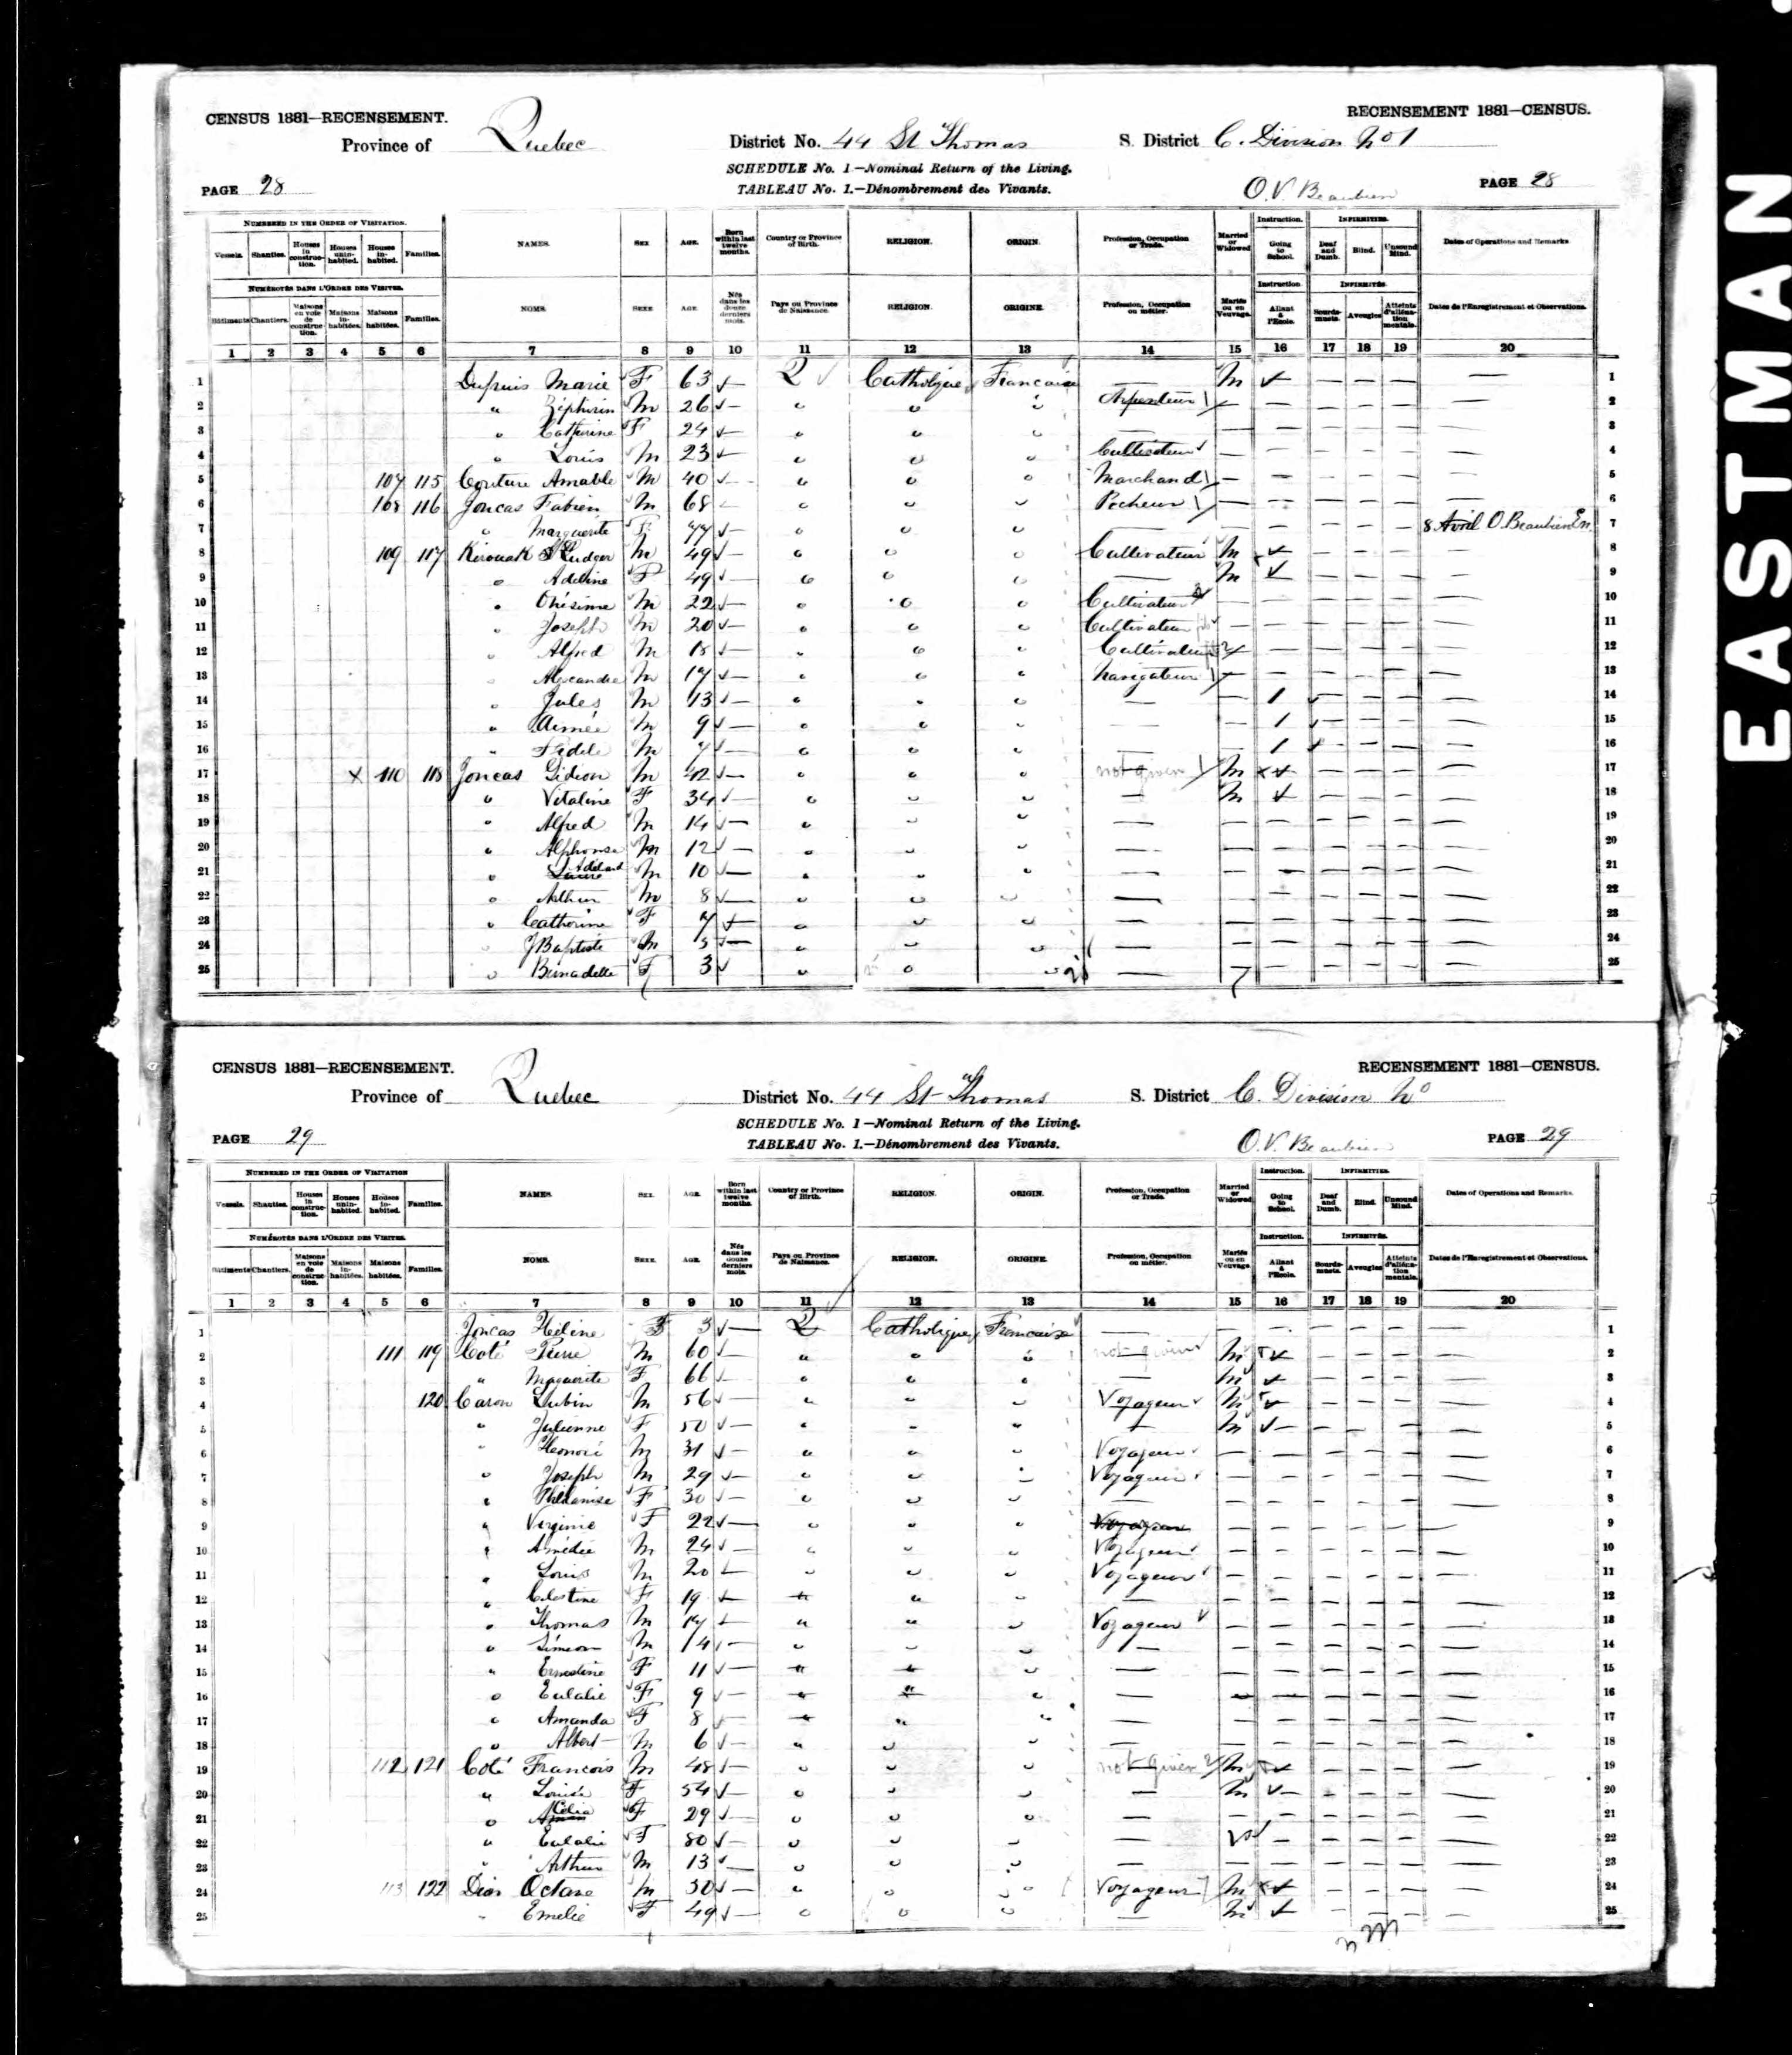 CENSUS 1881—RECENSEMENT. RECENSEMENT 1881—CENSUS.
Province of Quebec District No. 44 St Thomas S. District C. Division No 1
SCHEDULE No. 1—Nominal Return of the Living.
PAGE 28 TABLEAU No. 1.—Dénombrement des Vivants. O. V. Beaubien PAGE 28
NUMBERED IN THE ORDER OF VISITATION. NAMES. SEX. AGE. Born within last twelve months. Country or Province of Birth. RELIGION. ORIGIN. Profession, Occupation or Trade. Married or Widowed Instruction. Going to School. INFIRMITIES. Deaf and Dumb. Blind. Unsound Mind. Dates of Operations and Remarks.
Vessels. Shanties. Houses in construction. Houses uninhabited. Houses inhabited. Families.
NUMÉROTÉS DANS L'ORDRE DES VISITES. NOMS. SEXE. AGE. Nés dans les douze derniers mois. Pays ou Province de Naissance. RELIGION. ORIGINE. Profession, Occupation ou métier. Mariés ou en Veuvage. Instruction. Allant à l'École. INFIRMITÉS. Sourds-muets. Aveugles Atteints d'aliénation mentale. Dates de l'Enregistrement et Observations.
Bâtiments Chantiers. Maisons en voie de construction. Maisons inhabitées. Maisons habitées. Familles.
1 2 3 4 5 6 7 8 9 10 11 12 13 14 15 16 17 18 19 20
1 Dupuis Marie F 63 — Q Catholique Française — M — — — — 1
2 " Zéphirin M 26 — " " " Arpenteur — — — — — 2
3 " Catherine F 24 — " " " — — — — — 3
4 " Louis M 23 — " " " Cultivateur — — — — — 4
5 107 115 Couture Amable M 40 — " " " Marchand — — — — — 5
6 108 116 Joncas Fabien M 68 — " " " Pecheur — — — — — 6
7 " Marguerite F 77 — " " " — — — — 8 Avril O. Beaubien En. 7
8 109 117 Kirouak Ludger M 49 — " " " Cultivateur M — — — — 8
9 " Adeline F 49 — " " " — M — — — — 9
10 " Onésime M 22 — " " " Cultivateur — — — — — 10
11 " Joseph M 20 — " " " Cultivateur — — — — — 11
12 " Alfred M 18 — " " " Cultivateur — — — — — 12
13 " Alexandre M 17 — " " " Navigateur — — — — — 13
14 " Jules M 13 — " " " — — 1 — — — — 14
15 " Aimée M 9 — " " " — — 1 — — — — 15
16 " Fidele M 7 — " " " — — 1 — — — — 16
17 X 110 118 Joncas Gidion M 42 — " " " not given M — — — — 17
18 " Vitaline F 34 — " " " — M — — — — 18
19 " Alfred M 14 — " " " — — — — — — 19
20 " Alphonse M 12 — " " " — — — — — — 20
21 " Adélard M 10 — " " " — — — — — — 21
22 " Arthur M 8 — " " " — — — — — — 22
23 " Catherine F 7 — " " " — — — — — — 23
24 " J Baptiste M 5 — " " " — — — — — — 24
25 " Bernadette F 3 " " " — — — — — — 25
CENSUS 1881—RECENSEMENT. RECENSEMENT 1881—CENSUS.
Province of Quebec District No. 44 St Thomas S. District C. Division No
SCHEDULE No. 1—Nominal Return of the Living.
PAGE 29 TABLEAU No. 1.—Dénombrement des Vivants. O. V. Beaubien PAGE 29
NUMBERED IN THE ORDER OF VISITATION NAMES. SEX. AGE. Born within last twelve months. Country or Province of Birth. RELIGION. ORIGIN. Profession, Occupation or Trade. Married or Widowed Instruction. Going to School. INFIRMITIES. Deaf and Dumb. Blind. Unsound Mind. Dates of Operations and Remarks.
Vessels. Shanties. Houses in construction. Houses uninhabited. Houses inhabited. Families.
NUMÉROTÉS DANS L'ORDRE DES VISITES. NOMS. SEXE. AGE. Nés dans les douze derniers mois. Pays ou Province de Naissance. RELIGION. ORIGINE. Profession, Occupation ou métier. Mariés ou en Veuvage. Instruction. Allant à l'École. INFIRMITÉS. Sourds-muets. Aveugles Atteints d'aliénation mentale. Dates de l'Enregistrement et Observations.
Bâtiments Chantiers. Maisons en voie de construction. Maisons inhabitées. Maisons habitées. Familles.
1 2 3 4 5 6 7 8 9 10 11 12 13 14 15 16 17 18 19 20
1 Joncas Héléne F 3 — Q Catholique Francaise — — — — — — 1
2 111 119 Coté Pierre M 60 — " " " not given M — — — — 2
3 " Marguerite F 66 — " " " — M — — — — 3
4 120 Caron Lubin M 56 — " " " Voyageur M — — — — 4
5 " Julienne F 50 — " " " — M — — — — 5
6 " Honoré M 31 — " " " Voyageur — — — — — 6
7 " Joseph M 29 — " " " Voyageur — — — — — 7
8 " F 30 — " " " — — — — — — 8
9 " Virginie F 22 — " " " Voyageur — — — — — 9
10 " Amédée M 24 — " " " Voyageur — — — — — 10
11 " Louis M 20 — " " " Voyageur — — — — — 11
12 " Celestine F 19 — " " " — — — — — — 12
13 " Thomas M 17 — " " " Voyageur — — — — — 13
14 " Siméon M 14 — " " " — — — — — — 14
15 " Ernestine F 11 — " " " — — — — — — 15
16 " Eulalie F 9 — " " " — — — — — — 16
17 " Amanda F 8 — " " " — — — — — — 17
18 " Albert M 6 — " " " — — — — — — 18
19 112 121 Coté Francois M 48 — " " " not given M — — — — 19
20 " Louise F 54 — " " " — M — — — — 20
21 " Célia F 29 — " " " — — — — — — 21
22 " Eulalie F 80 — " " " — — — — — 22
23 " Arthur M 13 — " " " — — — — — — 23
24 113 122 Dion Octave M 50 — " " " Voyageur M — — — — 24
25 " Emelie F 49 — " " " — M — — — — 25
EASTMAN